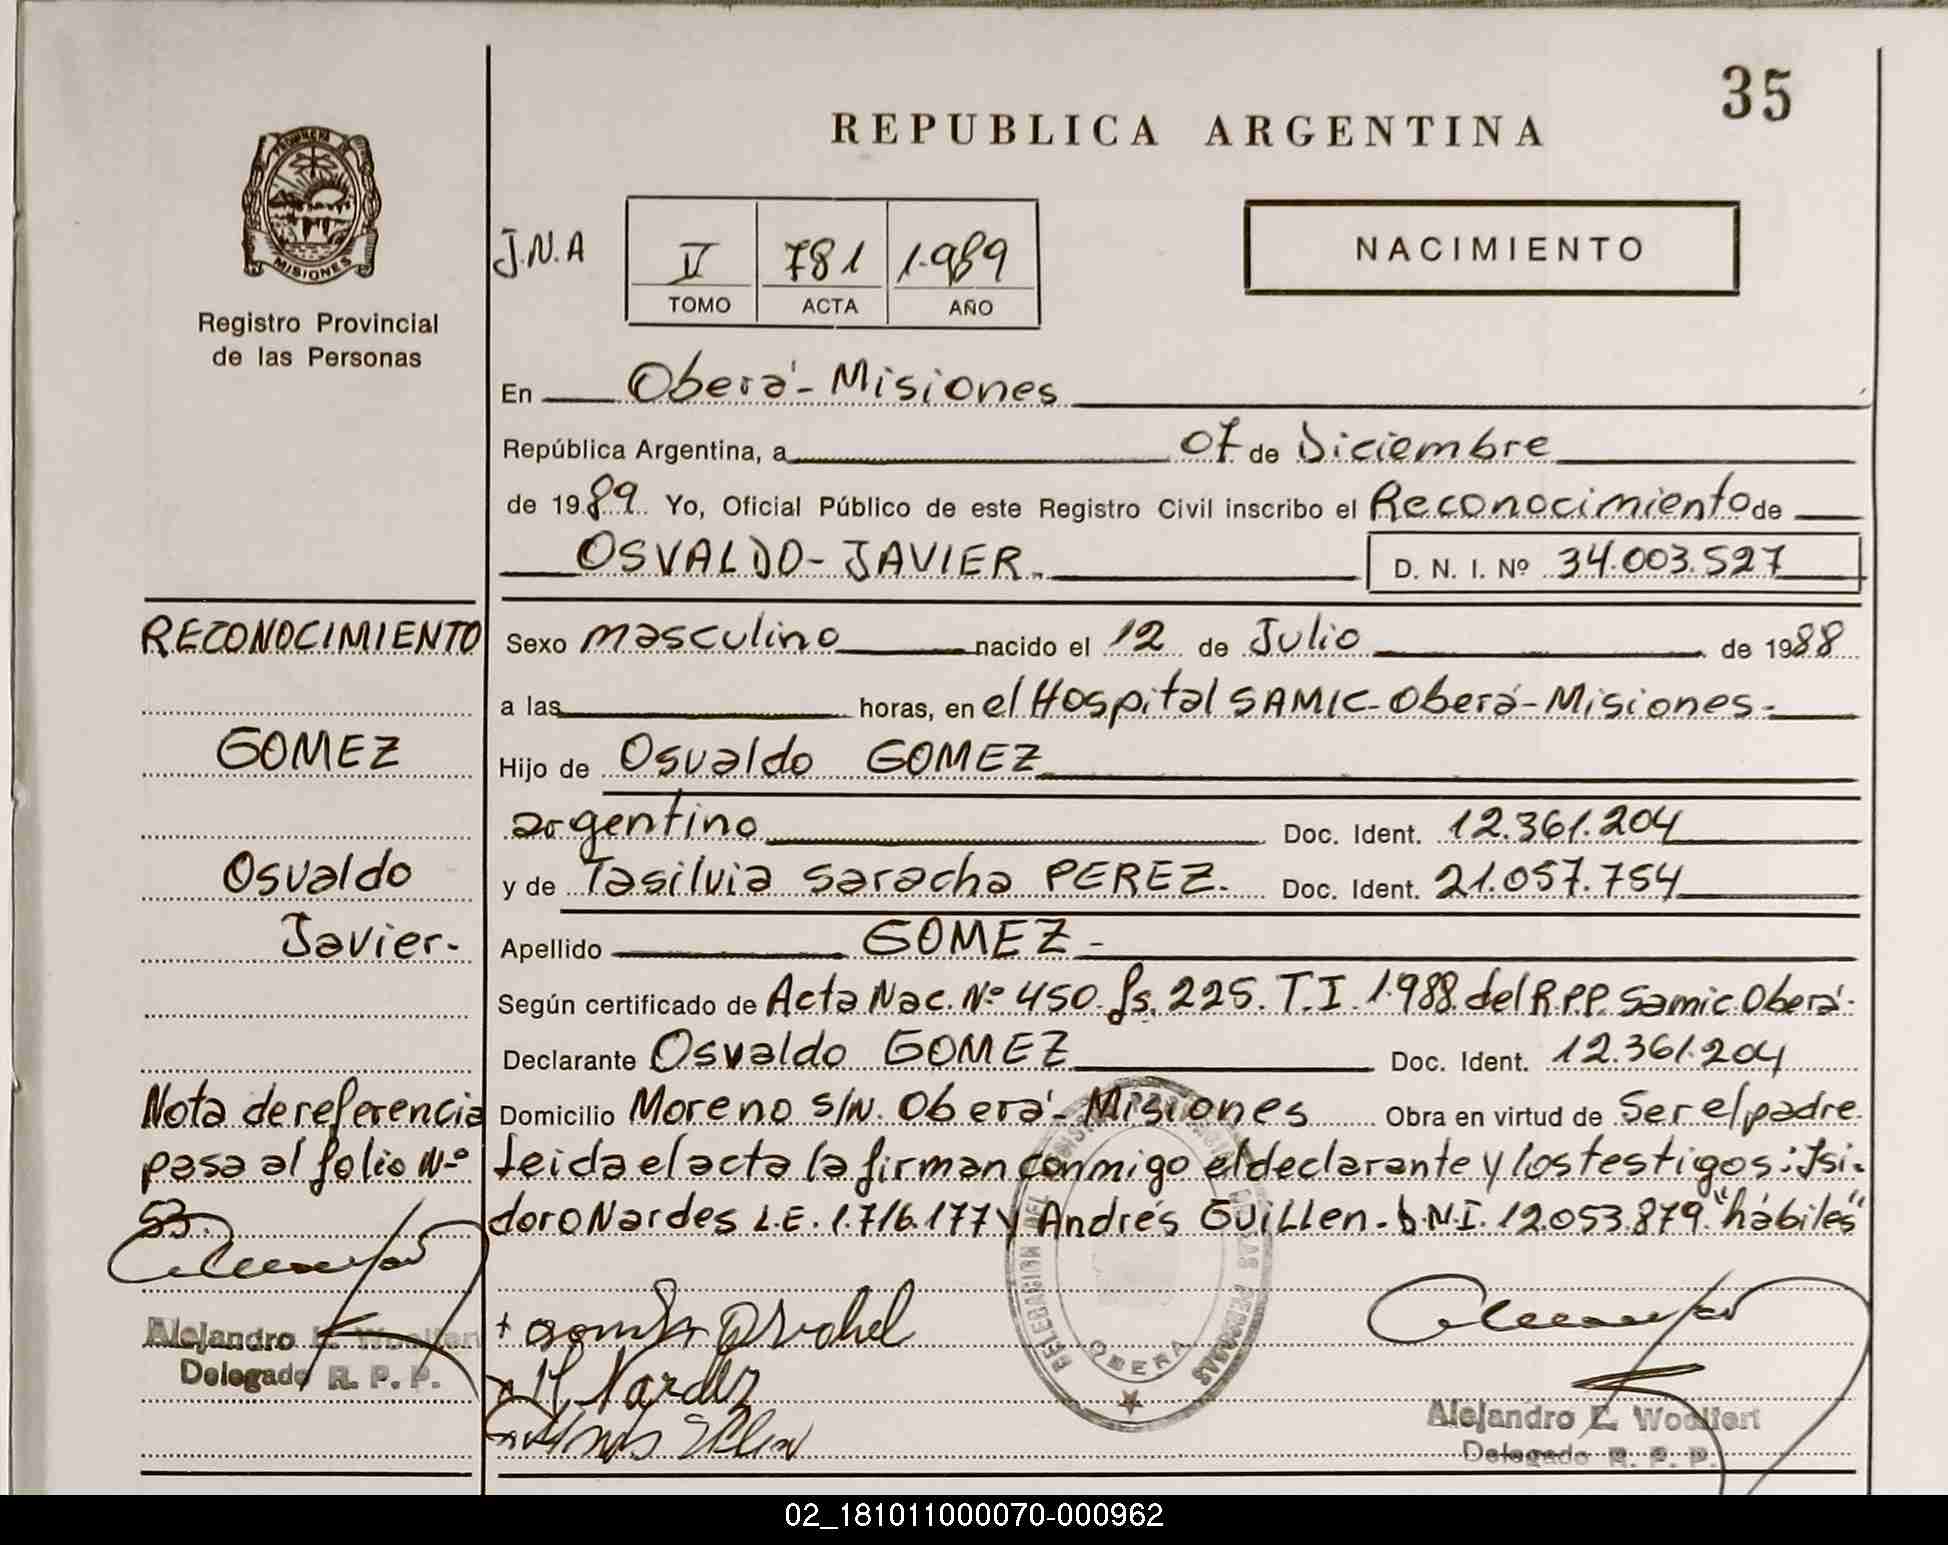 35
REPUBLICA ARGENTINA
PROVINCIA DE
MISIONES
Registro Provincial
de las Personas
J.N.A
V 781 1.989
TOMO ACTA AÑO
NACIMIENTO
En Oberá- Misiones
República Argentina, a 07 de Diciembre
de 1989. Yo, Oficial Público de este Registro Civil inscribo el Reconocimiento de
OSVALDO- JAVIER. D. N. I. Nº 34.003.527
RECONOCIMIENTO
GOMEZ
Osvaldo
Javier.-
Nota de referencia
pasa al folio Nº
53.
Alejandro E. Woellert
Delegado R. P. P.
Sexo masculino nacido el 12 de Julio de 1988
a las horas, en el Hospital SAMIC- Oberá- Misiones-
Hijo de Osvaldo GOMEZ
argentino Doc. Ident. 12.361.204
y de Tasilvia Saracha PEREZ. Doc. Ident. 21.057.754
Apellido GOMEZ-
Según certificado de Acta Nac. Nº 450. fs. 225. T.I. 1.988 del R.P.P. Samic Oberá-
Declarante Osvaldo GOMEZ Doc. Ident. 12.361.204
Domicilio Moreno s/n. Oberá- Misiones Obra en virtud de Ser el padre.
Leida el acta la firman conmigo el declarante y los testigos: Isi-
doro Nardes L.E. 1.716.177 y Andrés Guillen. D.N.I. 12.053.879 "hábiles"
DELEGACION DEL REGISTRO PROVINCIAL DE LAS PERSONAS
OBERA
Alejandro E. Woellert
Delegado R. P. P.
02_181011000070-000962